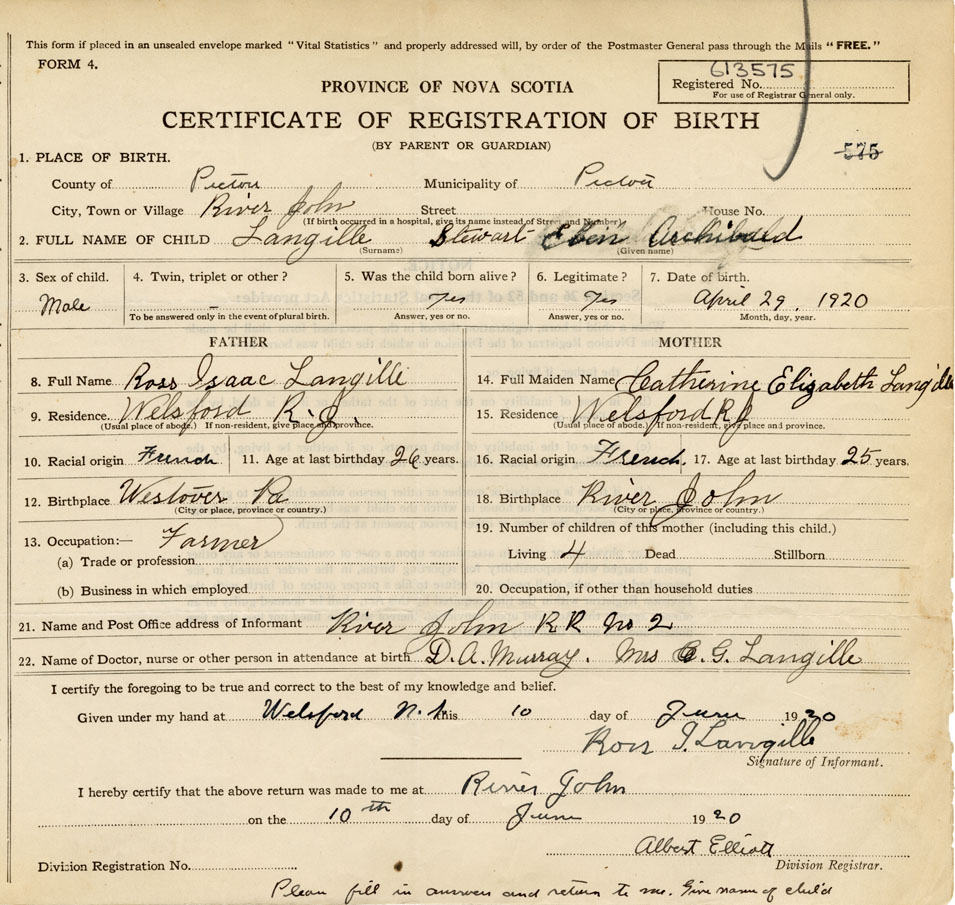 This form if placed in an unsealed envelope marked "Vital Statistics" and properly addressed will, by order of the Postmaster General pass through the Mails "FREE."
FORM 4.
613575
Registered No.
For use of Registrar General only.
PROVINCE OF NOVA SCOTIA
CERTIFICATE OF REGISTRATION OF BIRTH
(BY PARENT OR GUARDIAN)
575
1. PLACE OF BIRTH.
County of Pictou Municipality of Pictou
City, Town or Village River John Street House No.
(If birth occurred in a hospital, give its name instead of Street and Number)
2. FULL NAME OF CHILD Langille Stewart Eben Archibald
(Surname) (Given name)
3. Sex of child. 4. Twin, triplet or other? 5. Was the child born alive? 6. Legitimate? 7. Date of birth.
Male – yes Yes April 29, 1920
To be answered only in the event of plural birth. Answer, yes or no. Answer, yes or no. Month, day, year.
FATHER MOTHER
8. Full Name Ross Isaac Langille 14. Full Maiden Name Catherine Elizabeth Langille
9. Residence Welsford R.J. 15. Residence Welsford RJ
(Usual place of abode.) If non-resident, give place and province. (Usual place of abode.) If non-resident, give place and province.
10. Racial origin French 11. Age at last birthday 26 years. 16. Racial origin French. 17. Age at last birthday 25 years.
12. Birthplace Westover Pa 18. Birthplace River John
(City or place, province or country.) (City or place, province or country.)
13. Occupation:— Farmer 19. Number of children of this mother (including this child.)
(a) Trade or profession Living 4 Dead Stillborn
(b) Business in which employed 20. Occupation, if other than household duties
21. Name and Post Office address of Informant River John R R No 2
22. Name of Doctor, nurse or other person in attendance at birth D.A. Murray. Mrs G. Langille
I certify the foregoing to be true and correct to the best of my knowledge and belief.
Given under my hand at Welsford this 10 day of June 1920
Ross I. Langille
Signature of Informant.
I hereby certify that the above return was made to me at River John
on the 10th day of June 1920
Albert Elliott
Division Registration No. Division Registrar.
Please fill in answers and return to me. Give name of child